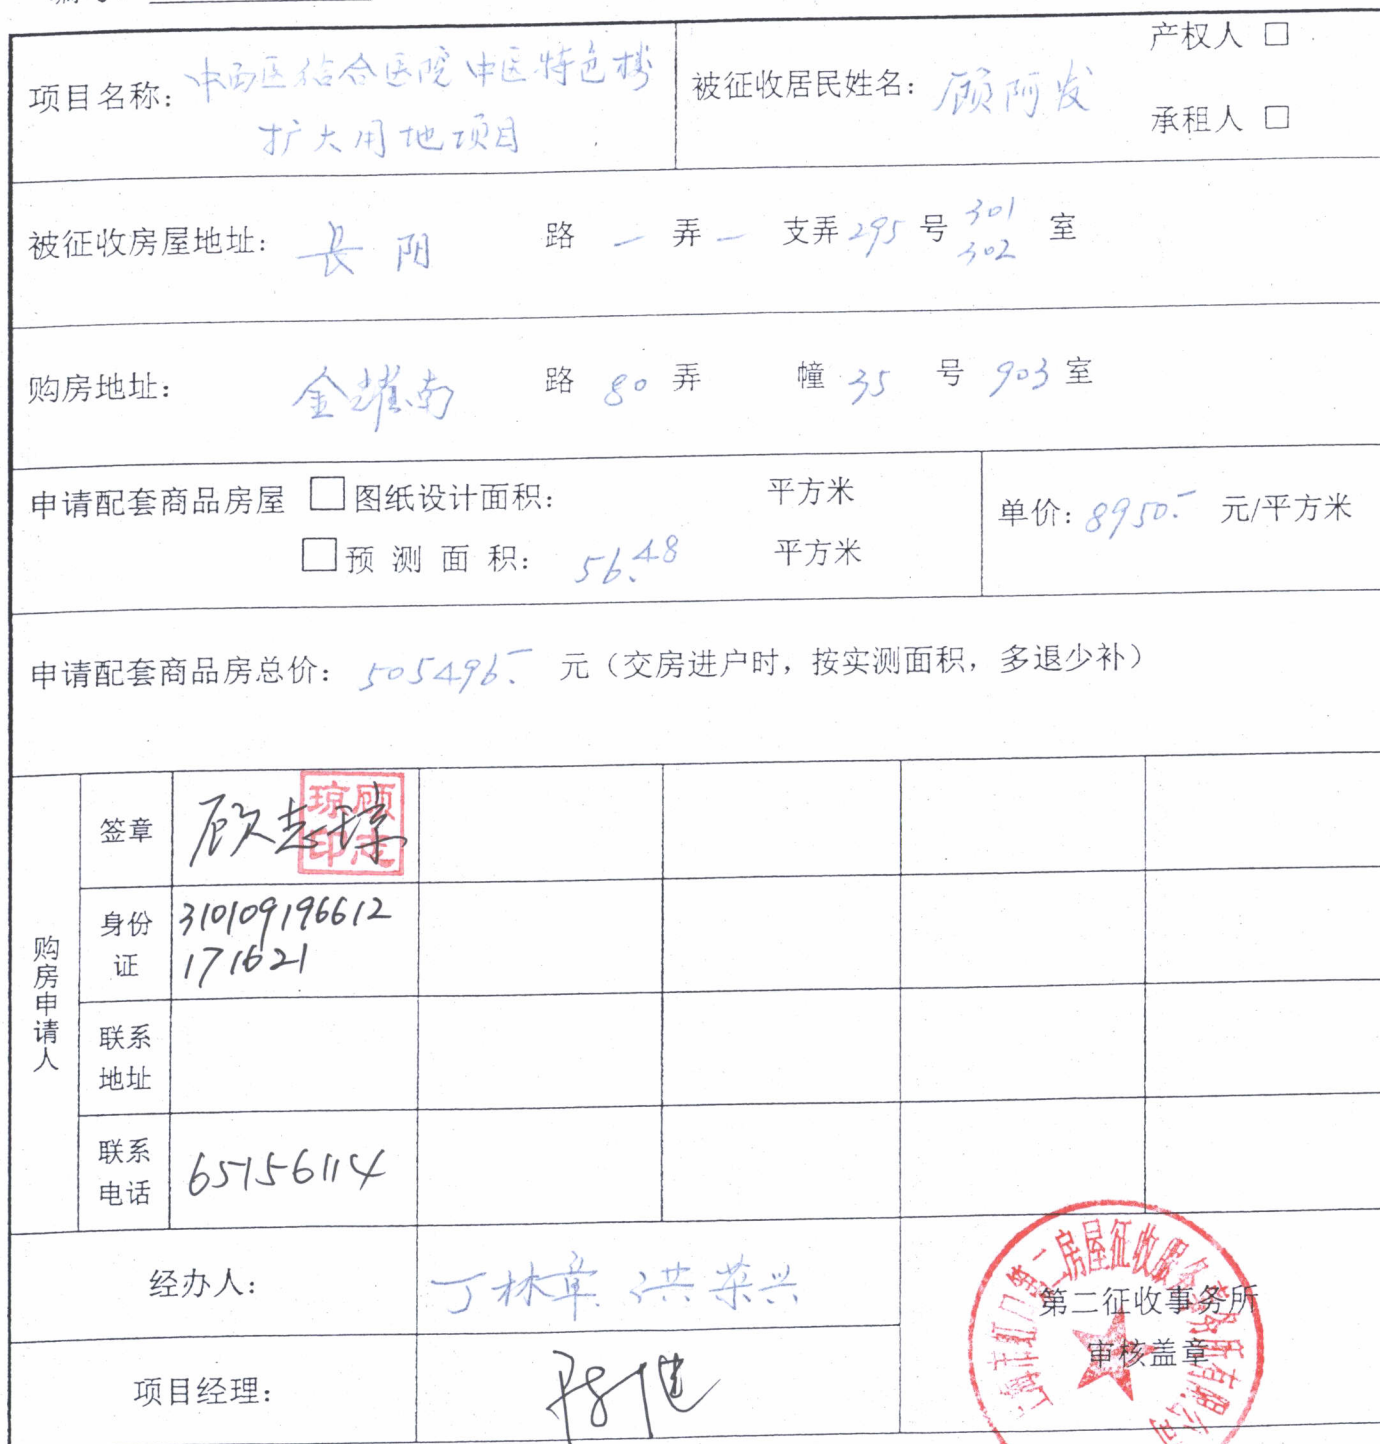 项目名称：中西医结合医院中医特色楼
扩大用地项目
被征收居民姓名：顾阿发
产权人 □
承租人 □
被征收房屋地址：长阳 路 — 弄 — 支弄 295 号 301 302 室
购房地址： 金耀南 路 80 弄 幢 35 号 903 室
申请配套商品房屋 □图纸设计面积： 平方米
□预 测 面 积： 56.48 平方米
单价：8950.- 元/平方米
申请配套商品房总价：505496.- 元（交房进户时，按实测面积，多退少补）
购房申请人
签章 顾志琼
顾志琼印
身份证 310109196612
171621
联系地址
联系电话 65156114
经办人： 丁林章 洪荣兴
项目经理：
第二征收事务所
审核盖章
上海市虹口第二房屋征收服务事务所有限公司